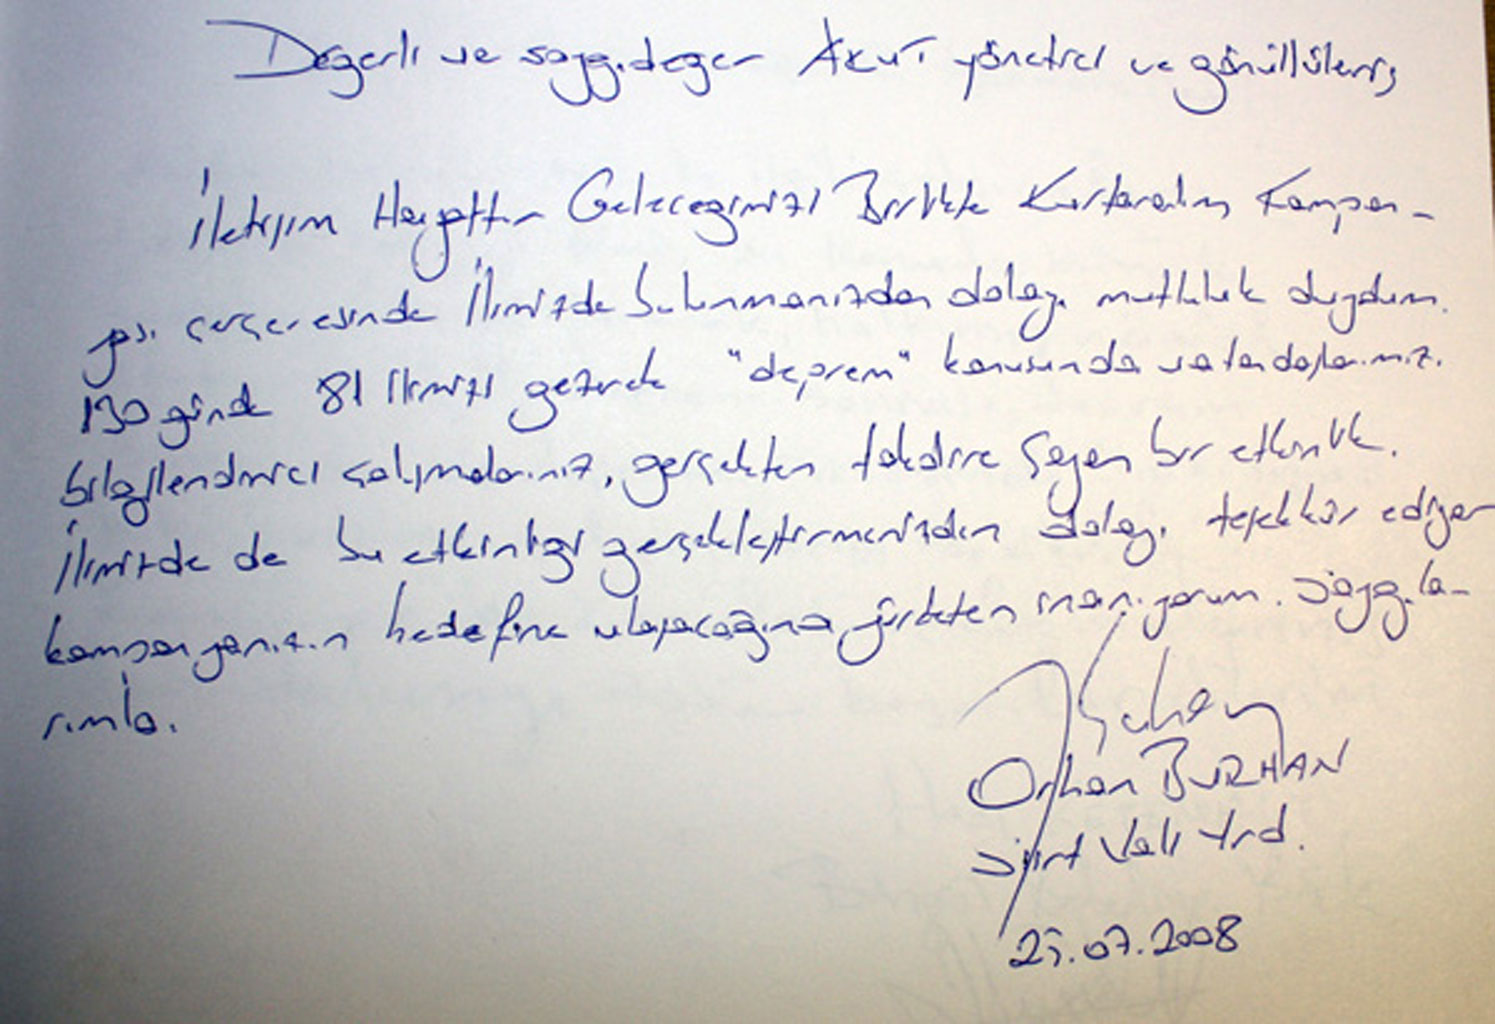 Değerli ve saygıdeğer AKUT yönetici ve gönüllüleri,
İletişim Hayattır Geleceğimizi Birlikte Kurtaralım Kampan-
yası çerçevesinde İlimizde bulunmanızdan dolayı mutluluk duydum.
130 günde 81 İlimizi gezerek "deprem" konusunda vatandaşlarımızı
bilgilendirici çalışmalarınız, gerçekten takdire şayan bir etkinlik.
İlimizde de bu etkinliği gerçekleştirmenizden dolayı teşekkür ediyor
kampanyanızın hedefine ulaşacağına yürekten inanıyorum. Saygıla-
rımla.
Orhan BURHAN
Siirt Vali Yrd.
25.07.2008